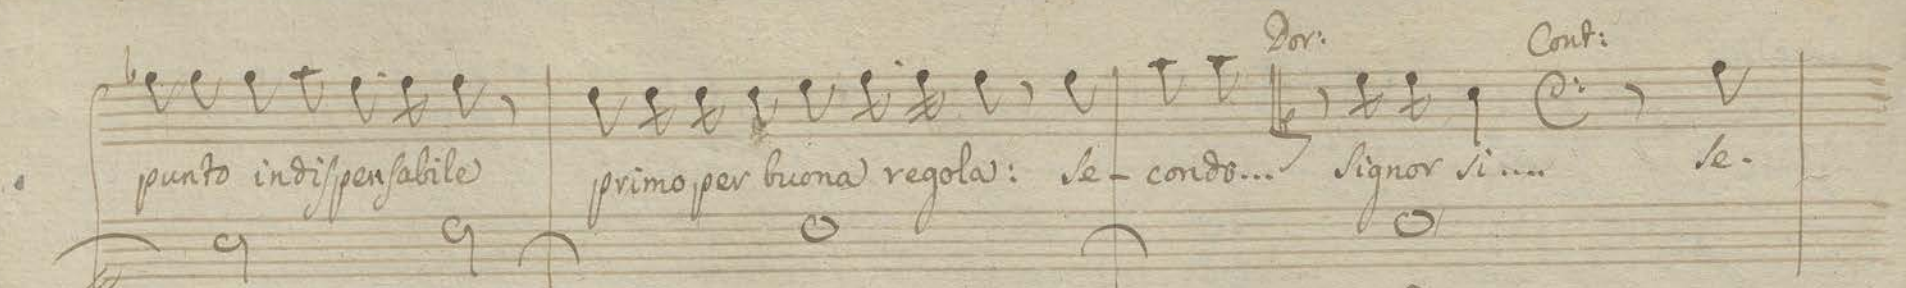 Dor: Cont:
punto indispensabile primo per buona regola: Se-condo... Signor si.... Se-